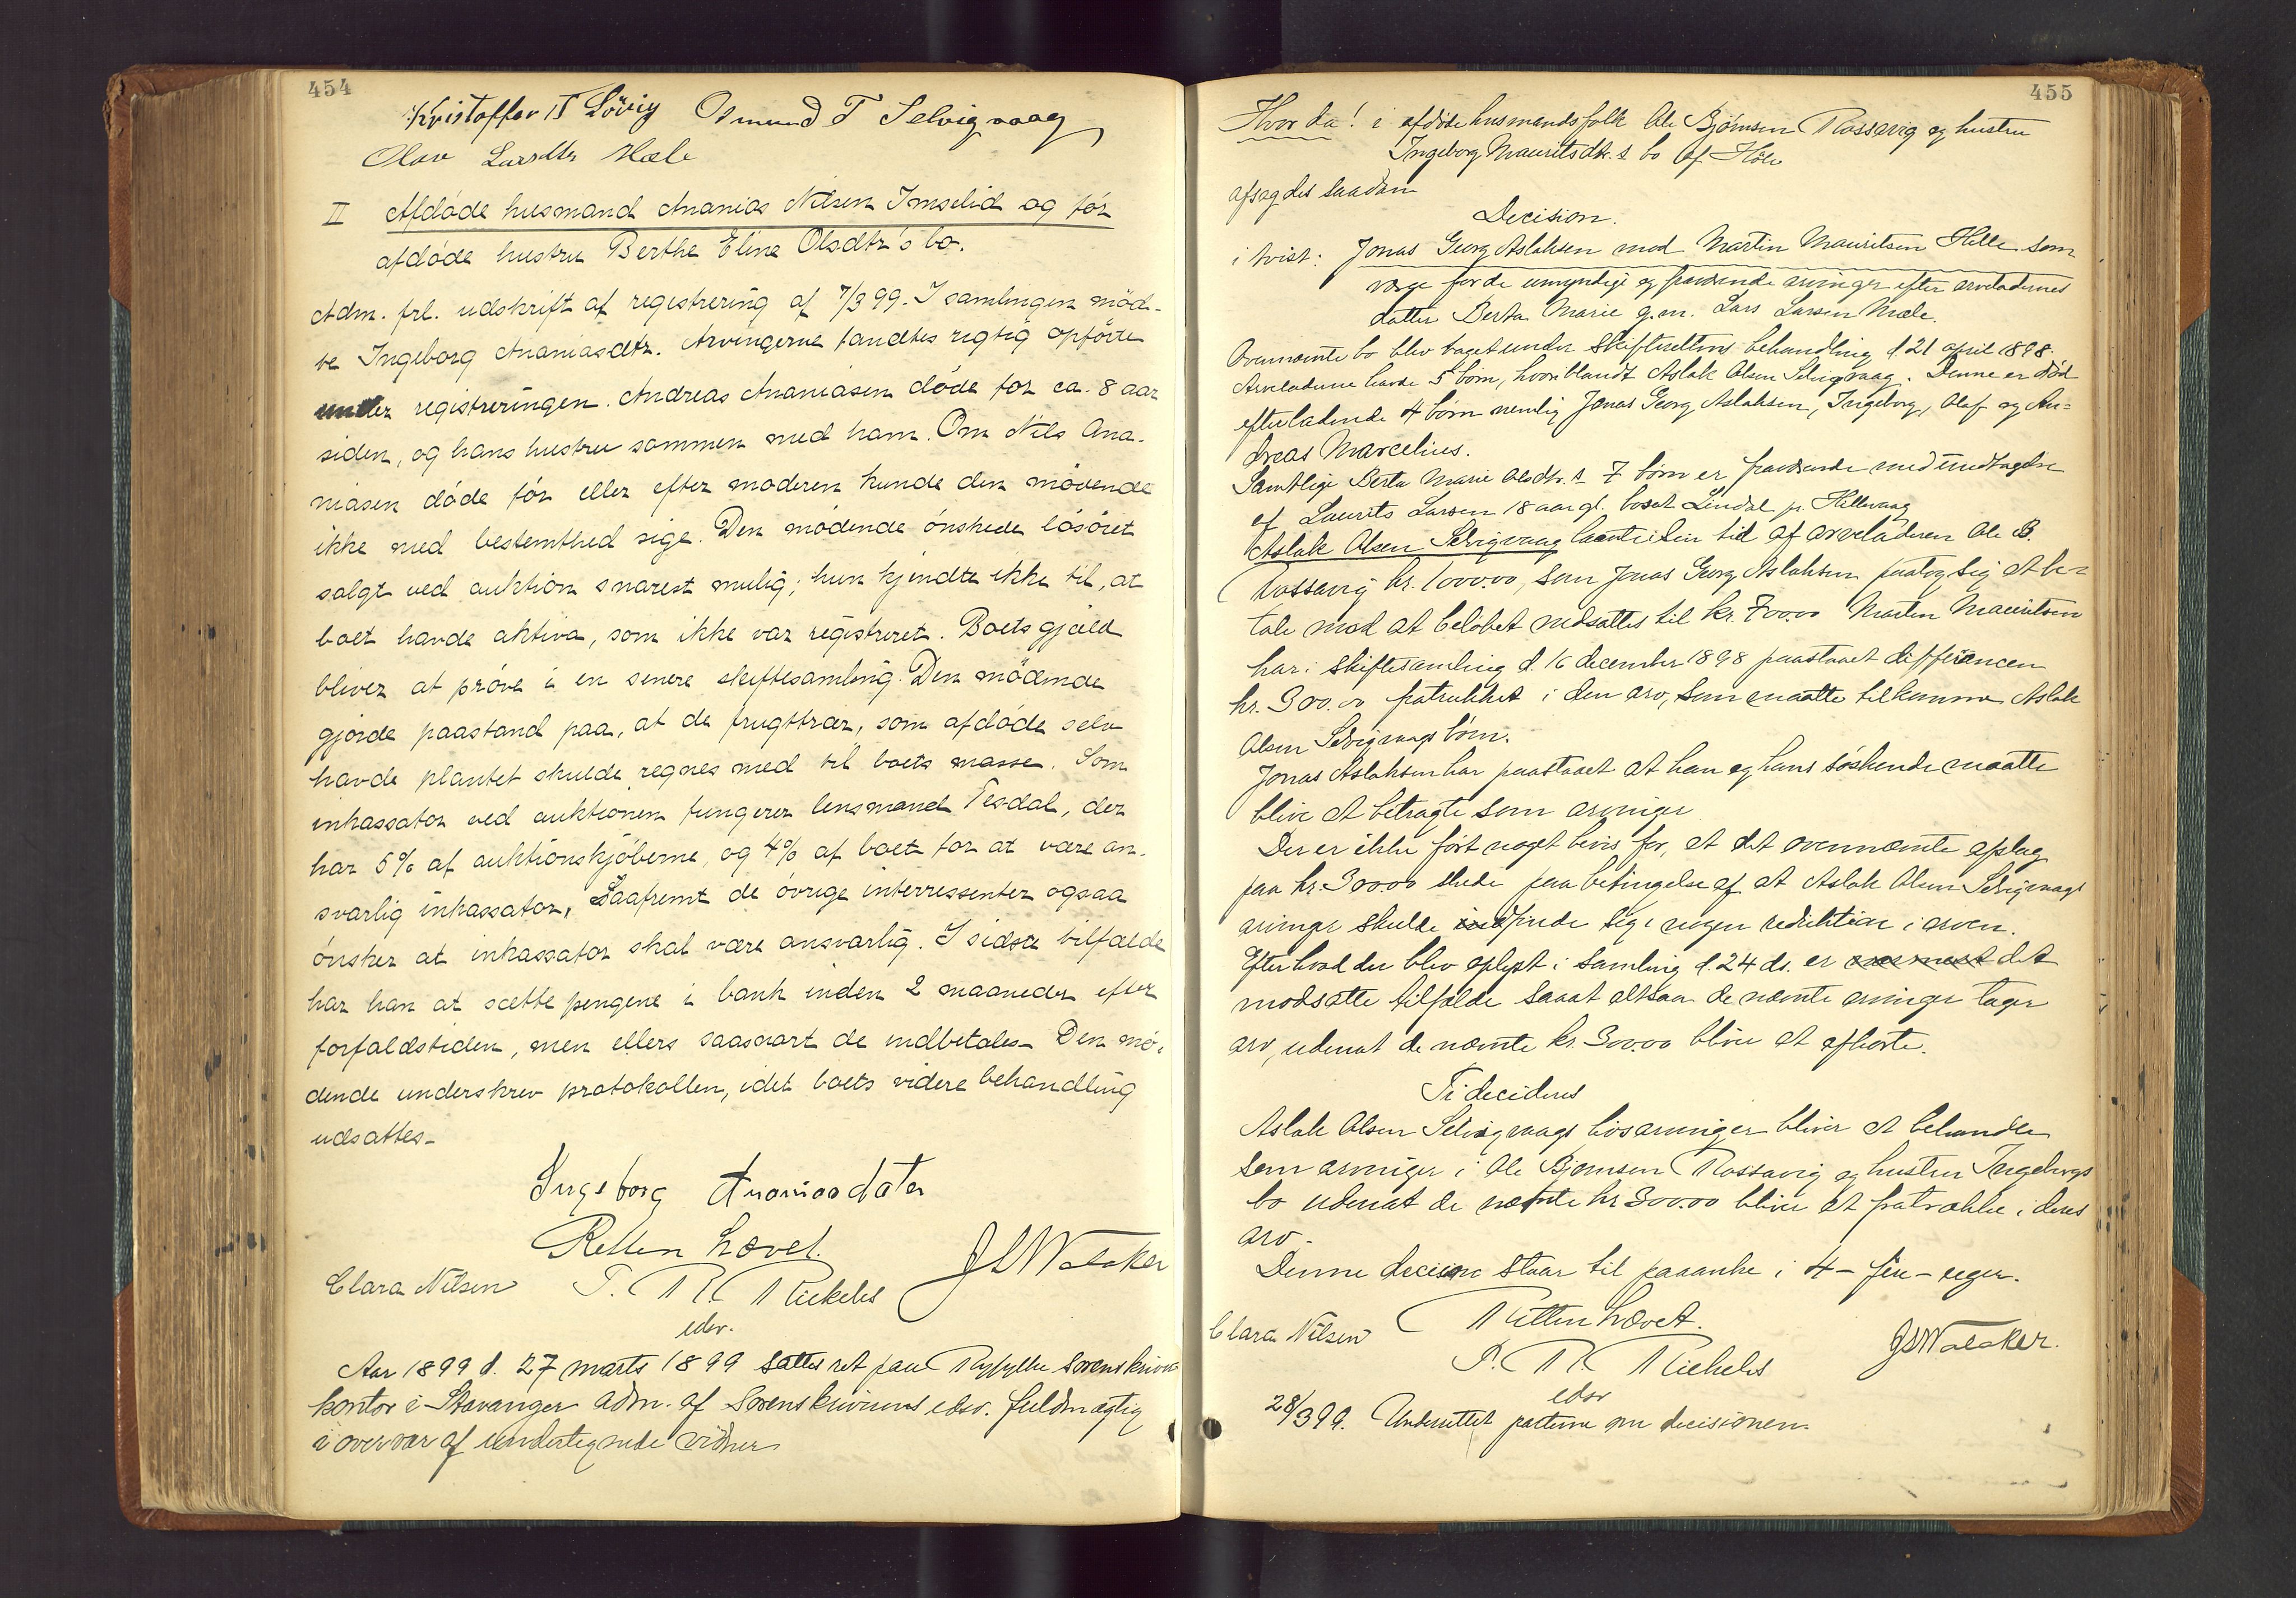 454
Kristoffer T Lövig Osmund T Selvigvaag
Olav Larsdtr Mæle
II Afdøde husmand Ananias Nilsen Imselid og før
afdøde hustru Berthe Eline Olsdtr's bo.
Adm. frl. udskrift af registrering af 7/3 99. I samlingen möd-
te Ingeborg Ananiasdtr. Arvingerne fandtes rigtig opförte
under registreringen. Andreas Ananiasen døde for ca. 8 aar
siden, og hans hustru sammen med ham. Om Nils Ana-
niasen døde før eller efter moderen kunde den mødende
ikke med bestemthed sige. Den mødende ønskede løsöret
solgt ved auktion snarest mulig; hun kjendte ikke til, at
boet havde aktiva, som ikke var registreret. Boets gjæld
bliver at prøve i en senere skiftesamling. Den mödende
gjorde paastand paa, at de frugttrær, som afdøde selv
havde plantet skulde regnes med til boets masse. Som
inkassator ved auktionen fungerer lensmand Tesdal, der
har 5% af auktionskjøberne, og 4% af boet for at være an-
svarlig inkassator, Saafremt de övrige interressenter ogsaa
ønsker at inkassator skal være ansvarlig. I sidste tilfælde
har han at sætte pengene i bank inden 2 maaneder efter
forfaldstiden, men ellers saasnart de indbetales. Den mö-
dende underskrev protokollen, idet boets videre behandling
udsattes.
Ingeborg Ananiasdater
Retten hævet.
Clara Nilsen P. R. Riekeles JSWalaker
edsv.
Aar 1899 d. 27 marts 1899 sattes ret paa Ryfylke sorenskriver
kontor i Stavanger adm. af Sorenskriverens edsv. fuldmægtig
i overvær af undertegnede vidner
455
Hvorda! i afdøde husmandsfolk Ole Bjørnsen Rossavig og hustru
Ingeborg Mauritsdtr.s bo af Höle
afsagdes saadan
Decision.
i tvist: Jonas Georg Aslaksen mod Martin Mauritsen Helle som
værge for de umyndige og fraværende arvinger efter arveladernes
datter Berta Marie g.m. Lars Larsen Mæle.
Ovennævnte bo blev taget under skifterettens behandling d. 21 april 1898.
Arveladerne havde 5 børn, hvoriblandt Aslak Olsen Selvigvaag. Denne er død
efterladende 4 børn nemlig Jonas Georg Aslaksen, Ingeborg, Olaf og An-
dreas Marcelius.
Samtlige Berta Marie Olsdtr.s 7 børn er fraværende med undtagelse
af Laurits Larsen 18 aar gl. bosat Lindal pr. Hillevaag
Aslak Olsen Selvigvaag laante i sin tid af arveladeren Ole B.
Rossavig kr. 1000.00, som Jonas Georg Aslaksen paatog sig at be-
tale mod at beløbet nedsattes til kr. 700.00 Martin Mauritsen
har i skiftesamling d. 16 december 1898 paastaaet differencen
kr. 300.00 fratrukket i den arv, som maatte tilkomme Aslak
Olsen Selvigvaags børn.
Jonas Aslaksen har paastaaet at han og hans søskende maatte
blive at betragte som arvinger
Der er ikke ført noget bevis for, at det ovennævnte afslag
paa kr. 300.00 skede paa betingelse af at Aslak Olsen Selvigvaags
arvinger skulde finde sig i nogen reduktion i arven.
Efter hvad der blev oplyst i samling d. 24 ds. er det
modsatte tilfælde saaat altsaa de nævnte arvinger tager
arv, udenat de nævnte kr. 300.00 blive at afkorte.
Ti decideres
Aslak Olsen Selvigvaags livsarvinger bliver at behandle
som arvinger i Ole Bjørnsen Rossavig og hustru Ingeborgs
bo udenat de nævnte kr 300.00 bliver at fratrække i deres
arv.
Denne decision staar til paaanke i 4 - fire - uger.
Retten hævet.
Clara Nilsen P. R. Riekeles JSWalaker.
edsv
28/3 99. Underrettet parterne om decisionen.